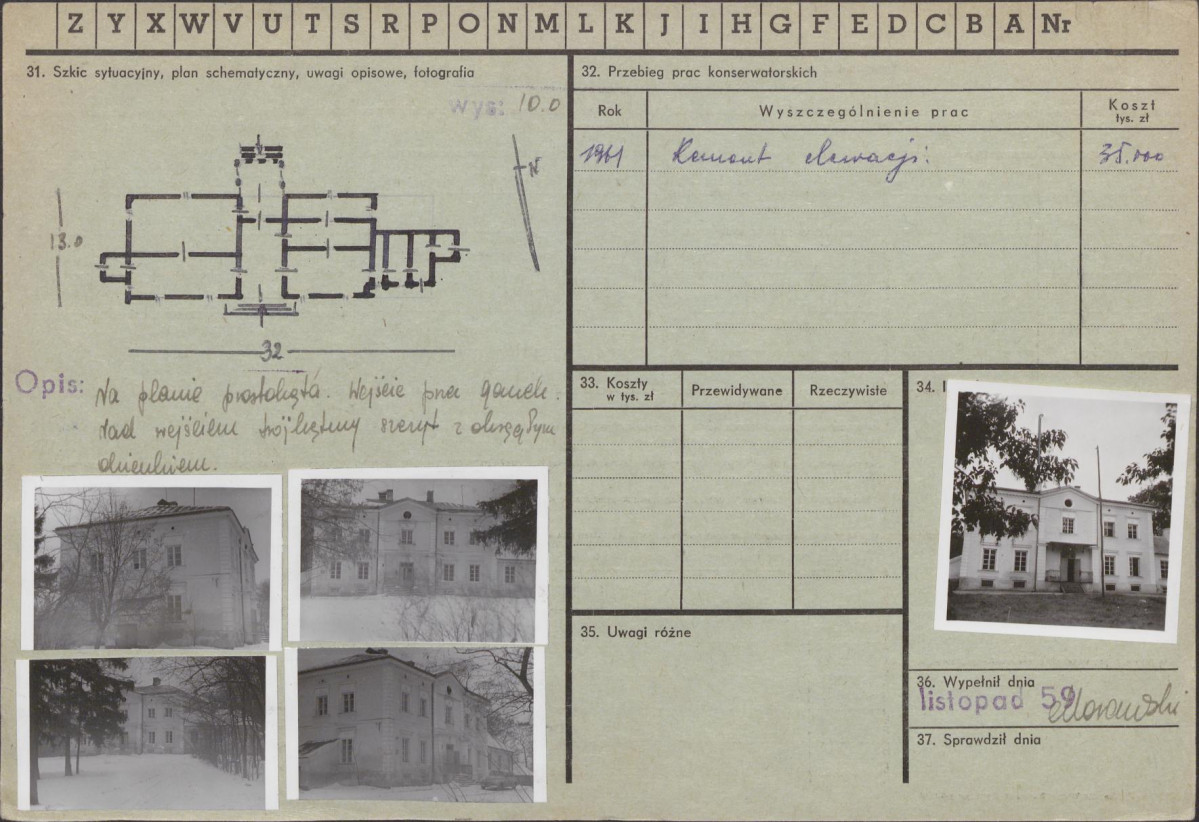 Z Y X W V U T S R P O N M L K J I H G F E D C B A Nr
31. Szkic sytuacyjny, plan schematyczny, uwagi opisowe, fotografia
wys: 10.0
N
13.0
32
Opis: Na planie prostokąta. Wejście przez ganek.
Nad wejściem trójkątny szczyt z okrągłym
okienkiem.
32. Przebieg prac konserwatorskich
Rok Wyszczególnienie prac Koszt
tys. zł
1961 Remont elewacji. 35.000
33. Koszty
w tys. zł
Przewidywane Rzeczywiste
34.
35. Uwagi różne
36. Wypełnił dnia
listopad 59
37. Sprawdził dnia